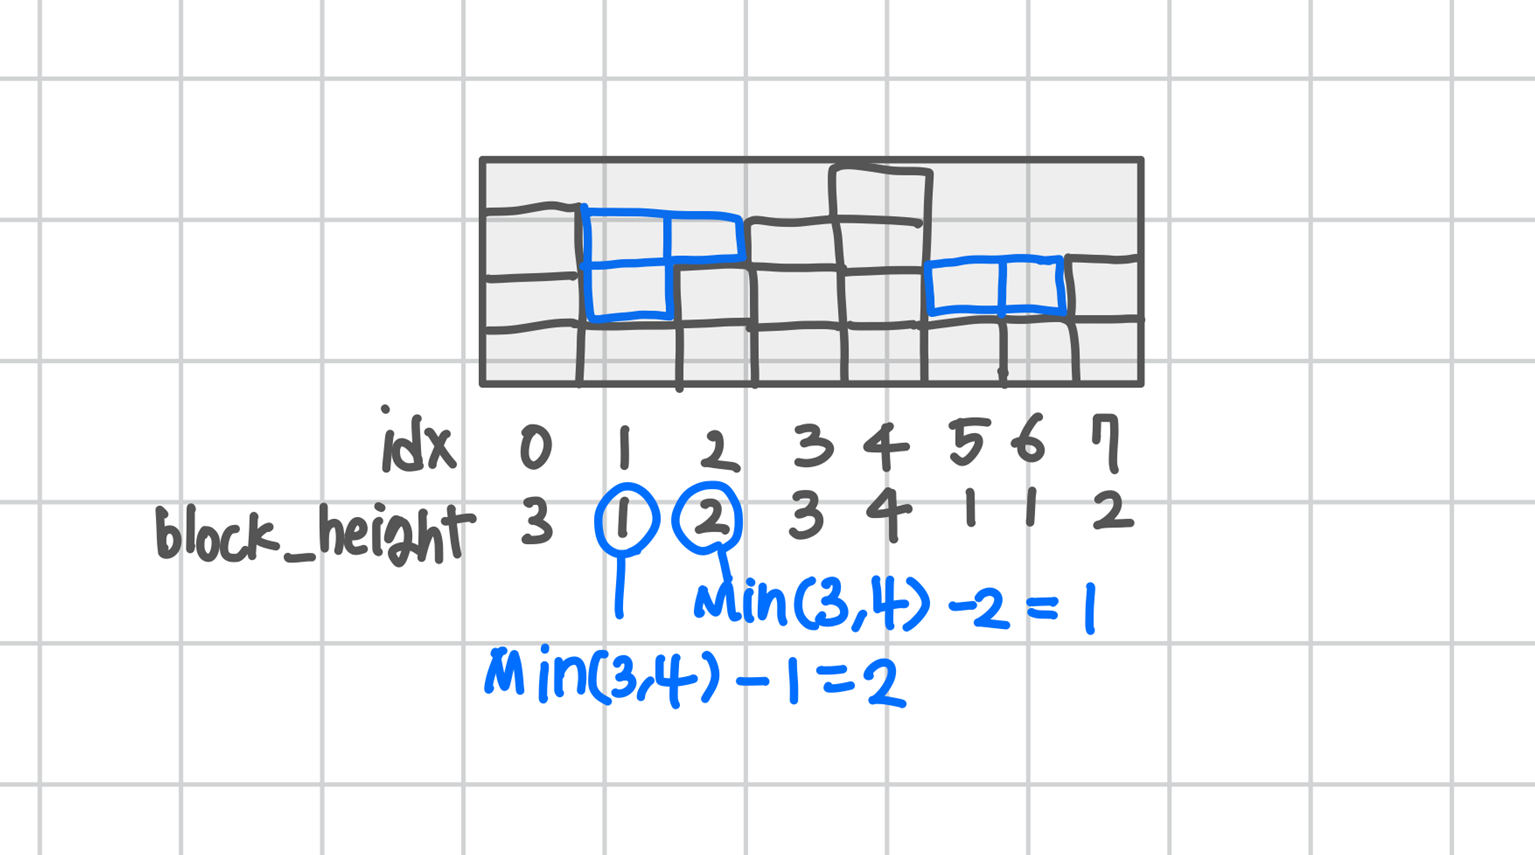 idx 0 1 2 3 4 5 6 7
block_height 3 1 2 3 4 1 1 2
Min(3,4) - 2 = 1
Min(3,4) - 1 = 2